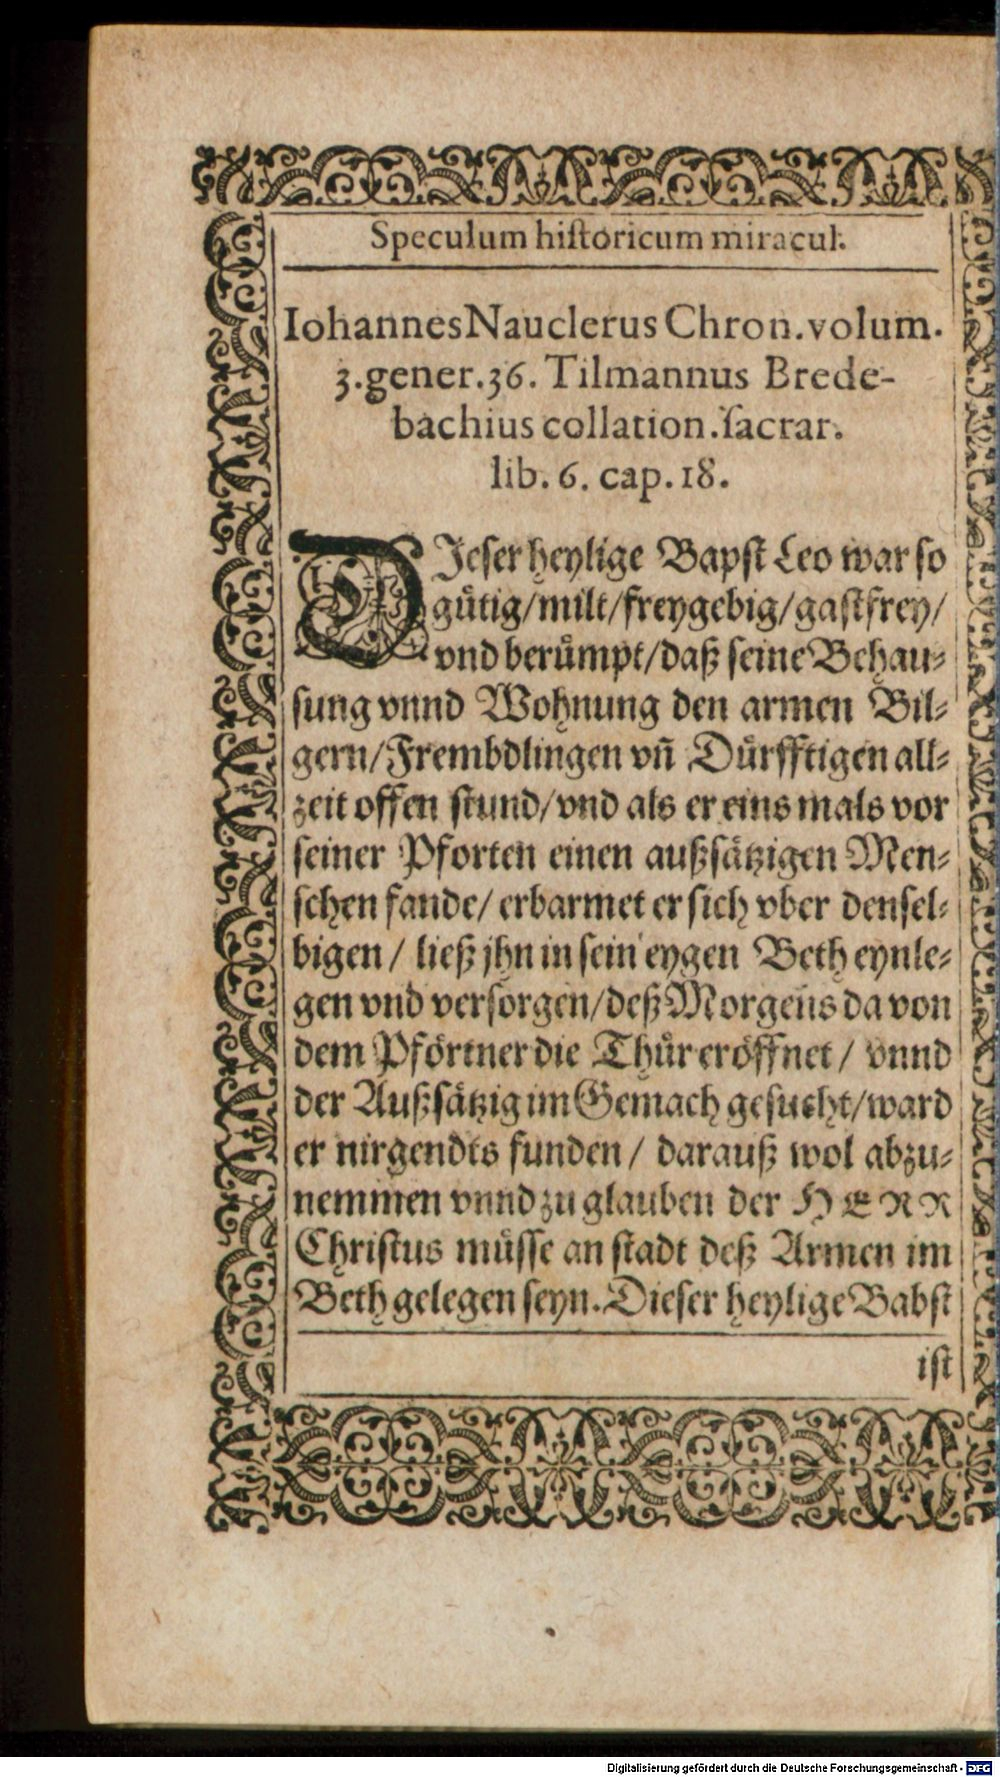 Speculum hiſtoricum miracul.
Iohannes Nauclerus Chron. volum.
3. gener. 36. Tilmannus Brede-
bachius collation. ſacrar.
lib. 6. cap. 18.
DIeſer heylige Bapſt Leo war ſo
guͤtig/ milt/ freygebig/ gaſtfrey/
vnd beruͤmpt/ daß ſeine Behau-
ſung vnnd Wohnung den armen Bil-
gern/ Frembdlingen vñ Duͤrfftigen all-
zeit offen ſtund/ vnd als er eins mals vor
ſeiner Pforten einen außſaͤtzigen Men-
ſchen fande/ erbarmet er ſich vber denſel-
bigen/ ließ jhn in ſein eygen Beth eynle-
gen vnd verſorgen/ deß Morgens da von
dem Pfoͤrtner die Thuͤr eroͤffnet/ vnnd
der Außſaͤtzig im Gemach geſucht/ ward
er nirgendts funden/ darauß wol abzu-
nemmen vnnd zu glauben der HERR
Chriſtus muͤſſe an ſtadt deß Armen im
Beth gelegen ſeyn. Dieſer heylige Babſt
iſt
Digitalisierung gefördert durch die Deutsche Forschungsgemeinschaft - DFG